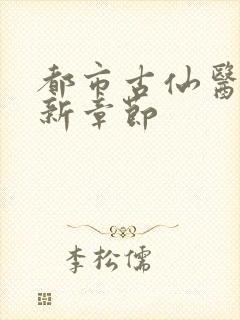 都市古仙醫
新章節
李松儒